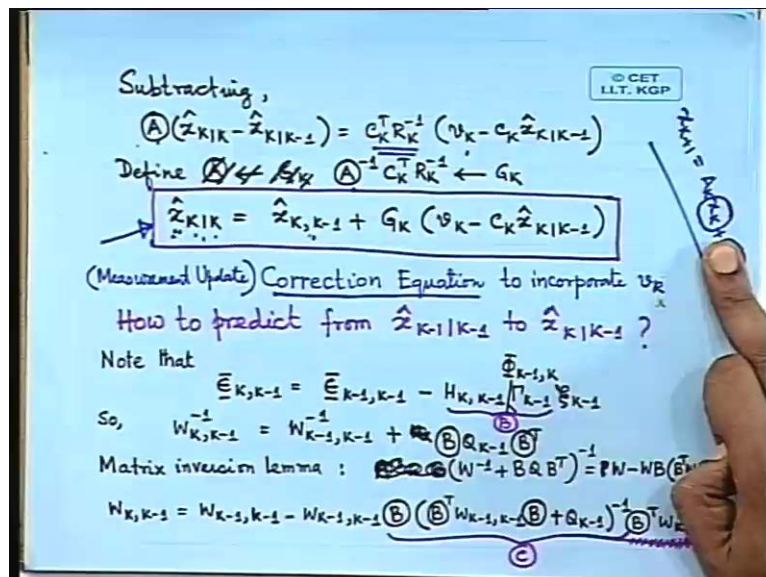 © CET
I.I.T. KGP
Subtracting,
Ⓐ(x̂_K|K - x̂_K|K-1) = C_K^T R_K^-1 (v_K - C_K x̂_K|K-1)
Define Ⓐ^-1 C_K^T R_K^-1 ← G_K
x̂_K|K = x̂_K,K-1 + G_K (v_K - C_K x̂_K|K-1)
(Measurement Update) Correction Equation to incorporate v_K
How to predict from x̂_K-1|K-1 to x̂_K|K-1 ?
Note that
Φ_K-1,K
ε̄_K,K-1 = ε̄_K-1,K-1 - H_K,K-1 Γ_K-1 ξ_K-1
Ⓑ
So, W_K,K-1^-1 = W_K-1,K-1^-1 + Ⓑ Q_K-1 Ⓑ^T
Matrix inversion lemma : (W^-1 + BQB^T)^-1 = W - WB(B^T
W_K,K-1 = W_K-1,K-1 - W_K-1,K-1 Ⓑ (Ⓑ^T W_K-1,K-1 Ⓑ + Q_K-1)^-1 Ⓑ^T W_K
Ⓒ